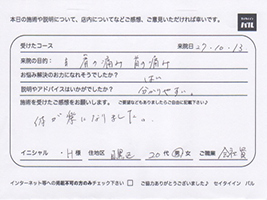 本日の施術や説明について、店内についてなどご感想、ご意見いただければ幸いです。
受けたコース
来院日 27-10-13
来院の目的: 肩の痛み 首の痛み
お悩み解決のお力になれそうでしたか? はい
説明やアドバイスはいかがでしたか? 分かりやすい。
施術を受けたご感想をお願いします。
体が楽になりました。
イニシャル H 様 住地区 目黒区 20代 男 女 ご職業 会社員
インターネット等への掲載不可の方のみチェック下さい □ ご協力ありがとうございました♪ セイタイイン パル